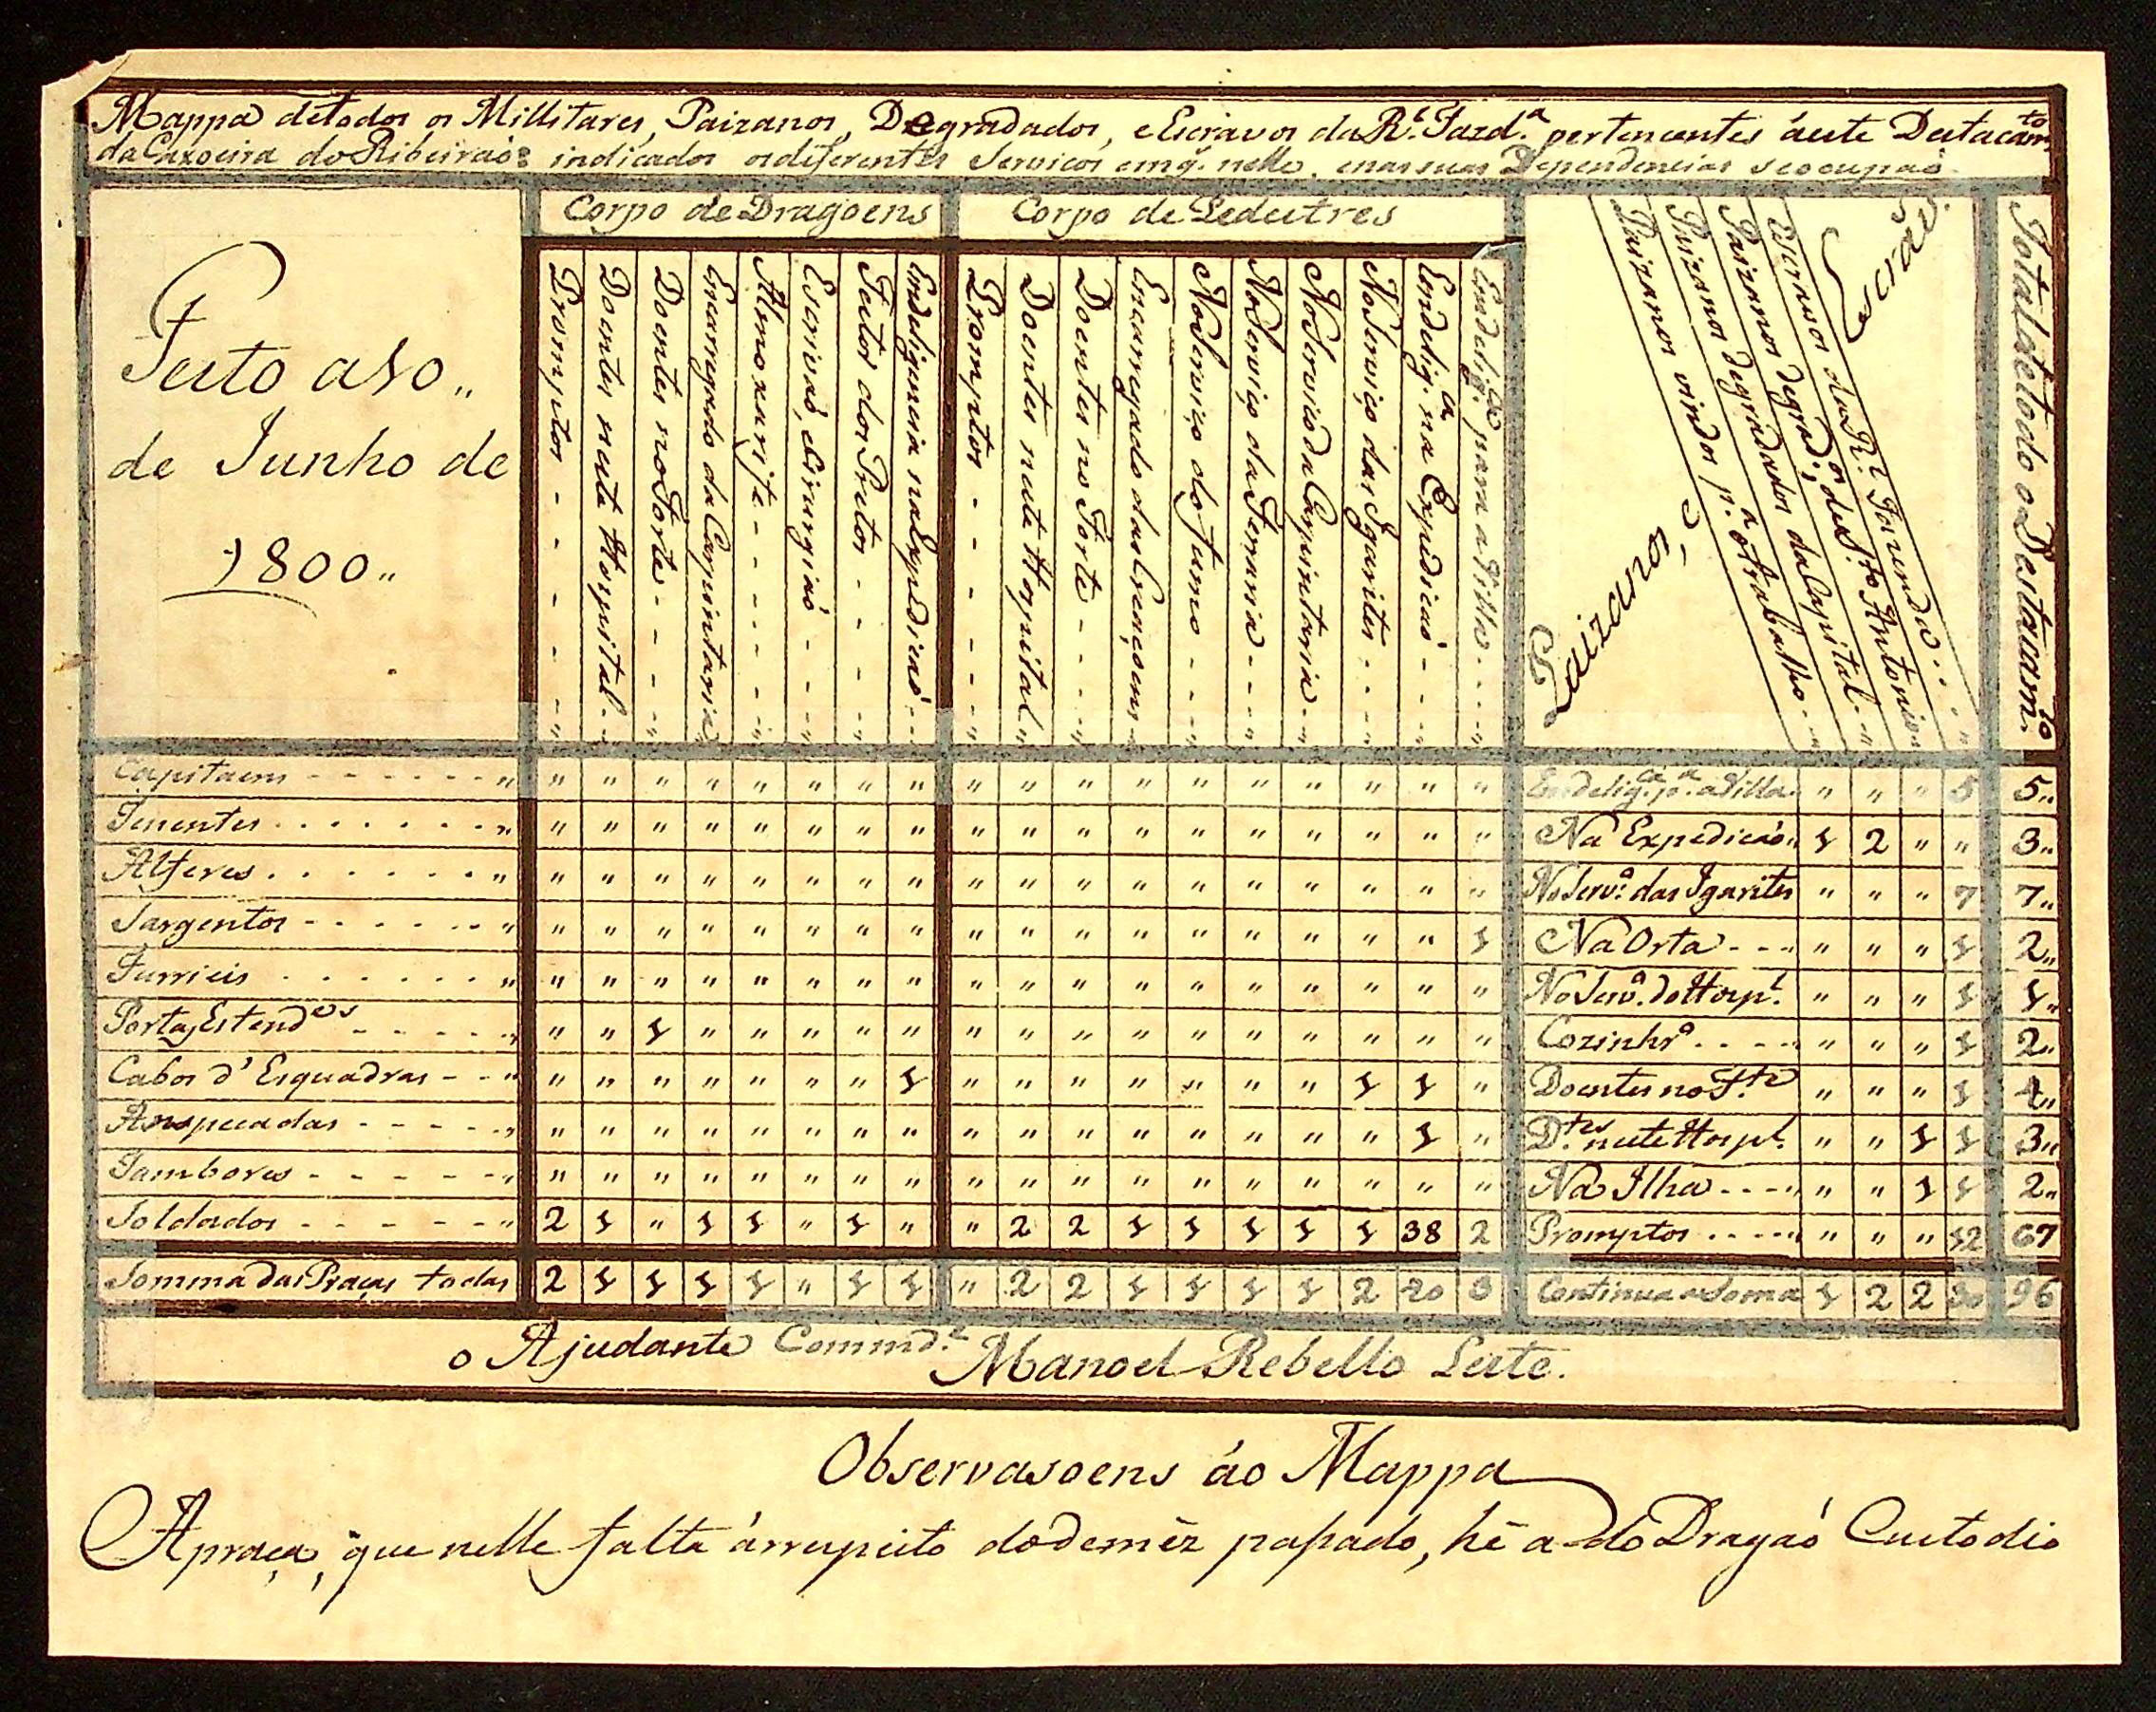 Mappa detodos os Millitares, Paizanos, Degradados, eEscravos daR.l Fazd.a pertencentes áeste Destacam.to
daCaxoeira doRibeiraó: indicados osdiferentes Servicos emq̃. nelle, enassuas Dependencias seocupaó.
Corpo de Dragoens
Corpo de Pedestres
Feito a 10„
de Junho de
1800„
Promptos
Doentes neste Hospital
Doentes noForte
Encarregado da Carpintaria
Almoxarife
Escrivaó, eCirurgiaó
Feitor dos Pretos
Emdeligencia naExpedicaó
Promptos
Doentes neste Hospital
Doentes no Forte
Encarregado dasCreaçoens
NoServiço do
NoServiço da Ferraria
NoServiço da Carpintaria
NoServiço das Igarites
Emdelig.ca na Expedicaó
Emdelig.ca para a Villa
Paizanos, e
Escravos
Paizanos vindos p.a oTrabalho
Paizanos degradados daCapital
Paizanos degrad.os deS.to Antonio
Escravos da R.l Fazenda
Total detodo oDestacam.to
Capitaens „ „ „ „ „ „ „ „ „ „ „ „ „ „ „ „ „ „ „ Emdelig.ca p.a aVilla „ „ „ 5 5„
Tenentes „ „ „ „ „ „ „ „ „ „ „ „ „ „ „ „ „ „ „ Na Expedicaó „ 1 2 „ „ 3„
Alferes „ „ „ „ „ „ „ „ „ „ „ „ „ „ „ „ „ „ „ NoServ.o das Igarites „ „ „ 7 7„
Sargentos „ „ „ „ „ „ „ „ „ „ „ „ „ „ „ „ „ „ 1 Na Orta „ „ „ „ 1 2„
Furrieis „ „ „ „ „ „ „ „ „ „ „ „ „ „ „ „ „ „ „ NoServ.o doHosp.l „ „ „ 1 1„
PortaEstend.es „ „ „ 1 „ „ „ „ „ „ „ „ „ „ „ „ „ „ „ Cozinhr.o „ „ „ „ 1 2„
Cabos d'Esquadras „ „ „ „ „ „ „ „ 1 „ „ „ „ „ „ „ 1 1 „ Doentes no F.te „ „ „ 1
Anspecadas „ „ „ „ „ „ „ „ „ „ „ „ „ „ „ „ „ 1 „ D.tes neste Hosp.l „ „ 1 1 3„
Tambores „ „ „ „ „ „ „ „ „ „ „ „ „ „ „ „ „ „ „ Na Ilha „ „ „ 1 1 2„
Soldados „ 2 1 „ 1 1 „ 1 „ „ 2 2 1 1 1 1 1 38 2 Promptos „ „ „ „ 12 67
Somma das Praças todas 2 1 1 1 1 „ 1 1 „ 2 2 1 1 1 1 2 3 Continua aSoma 1 2 2 30 96
o Ajudante Commd.e Manoel Rebello Leite.
Observasoens áo Mappa
Apraça, que nelle falta árrespeito dodemêz passado, hê a do Dragaó Custodio